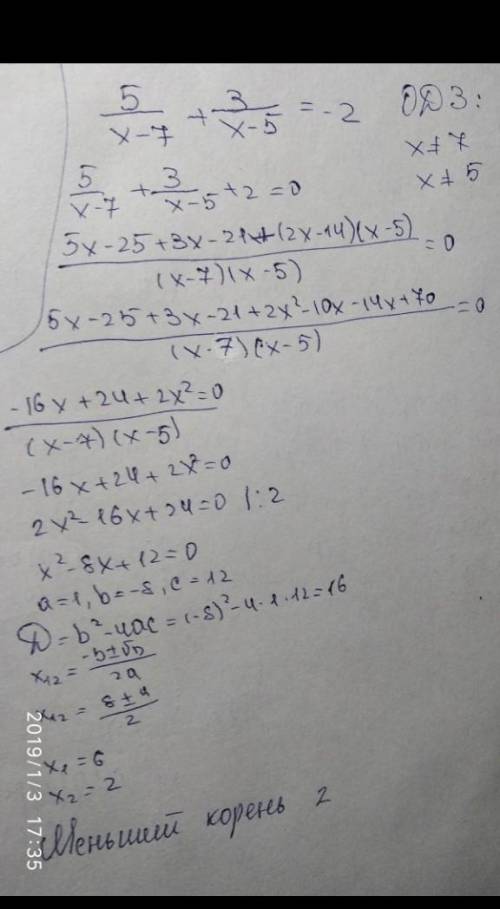 5/(x-7) + 3/(x-5) = -2 ОДЗ:
x ≠ 7
x ≠ 5
5/(x-7) + 3/(x-5) + 2 = 0
(5x-25+3x-21+(2x-14)(x-5))/((x-7)(x-5)) = 0
(5x-25+3x-21+2x²-10x-14x+70)/((x-7)(x-5)) = 0
(-16x+24+2x²=0)/((x-7)(x-5))
-16x+24+2x²=0
2x²-16x+24=0 |:2
x²-8x+12=0
a=1, b=-8, c=12
D=b²-4ac=(-8)²-4·1·12=16
x₁₂=(-b±√D)/2a
x₁₂=(8±4)/2
x₁=6
x₂=2
Меньший корень 2
2019/1/3 17:35